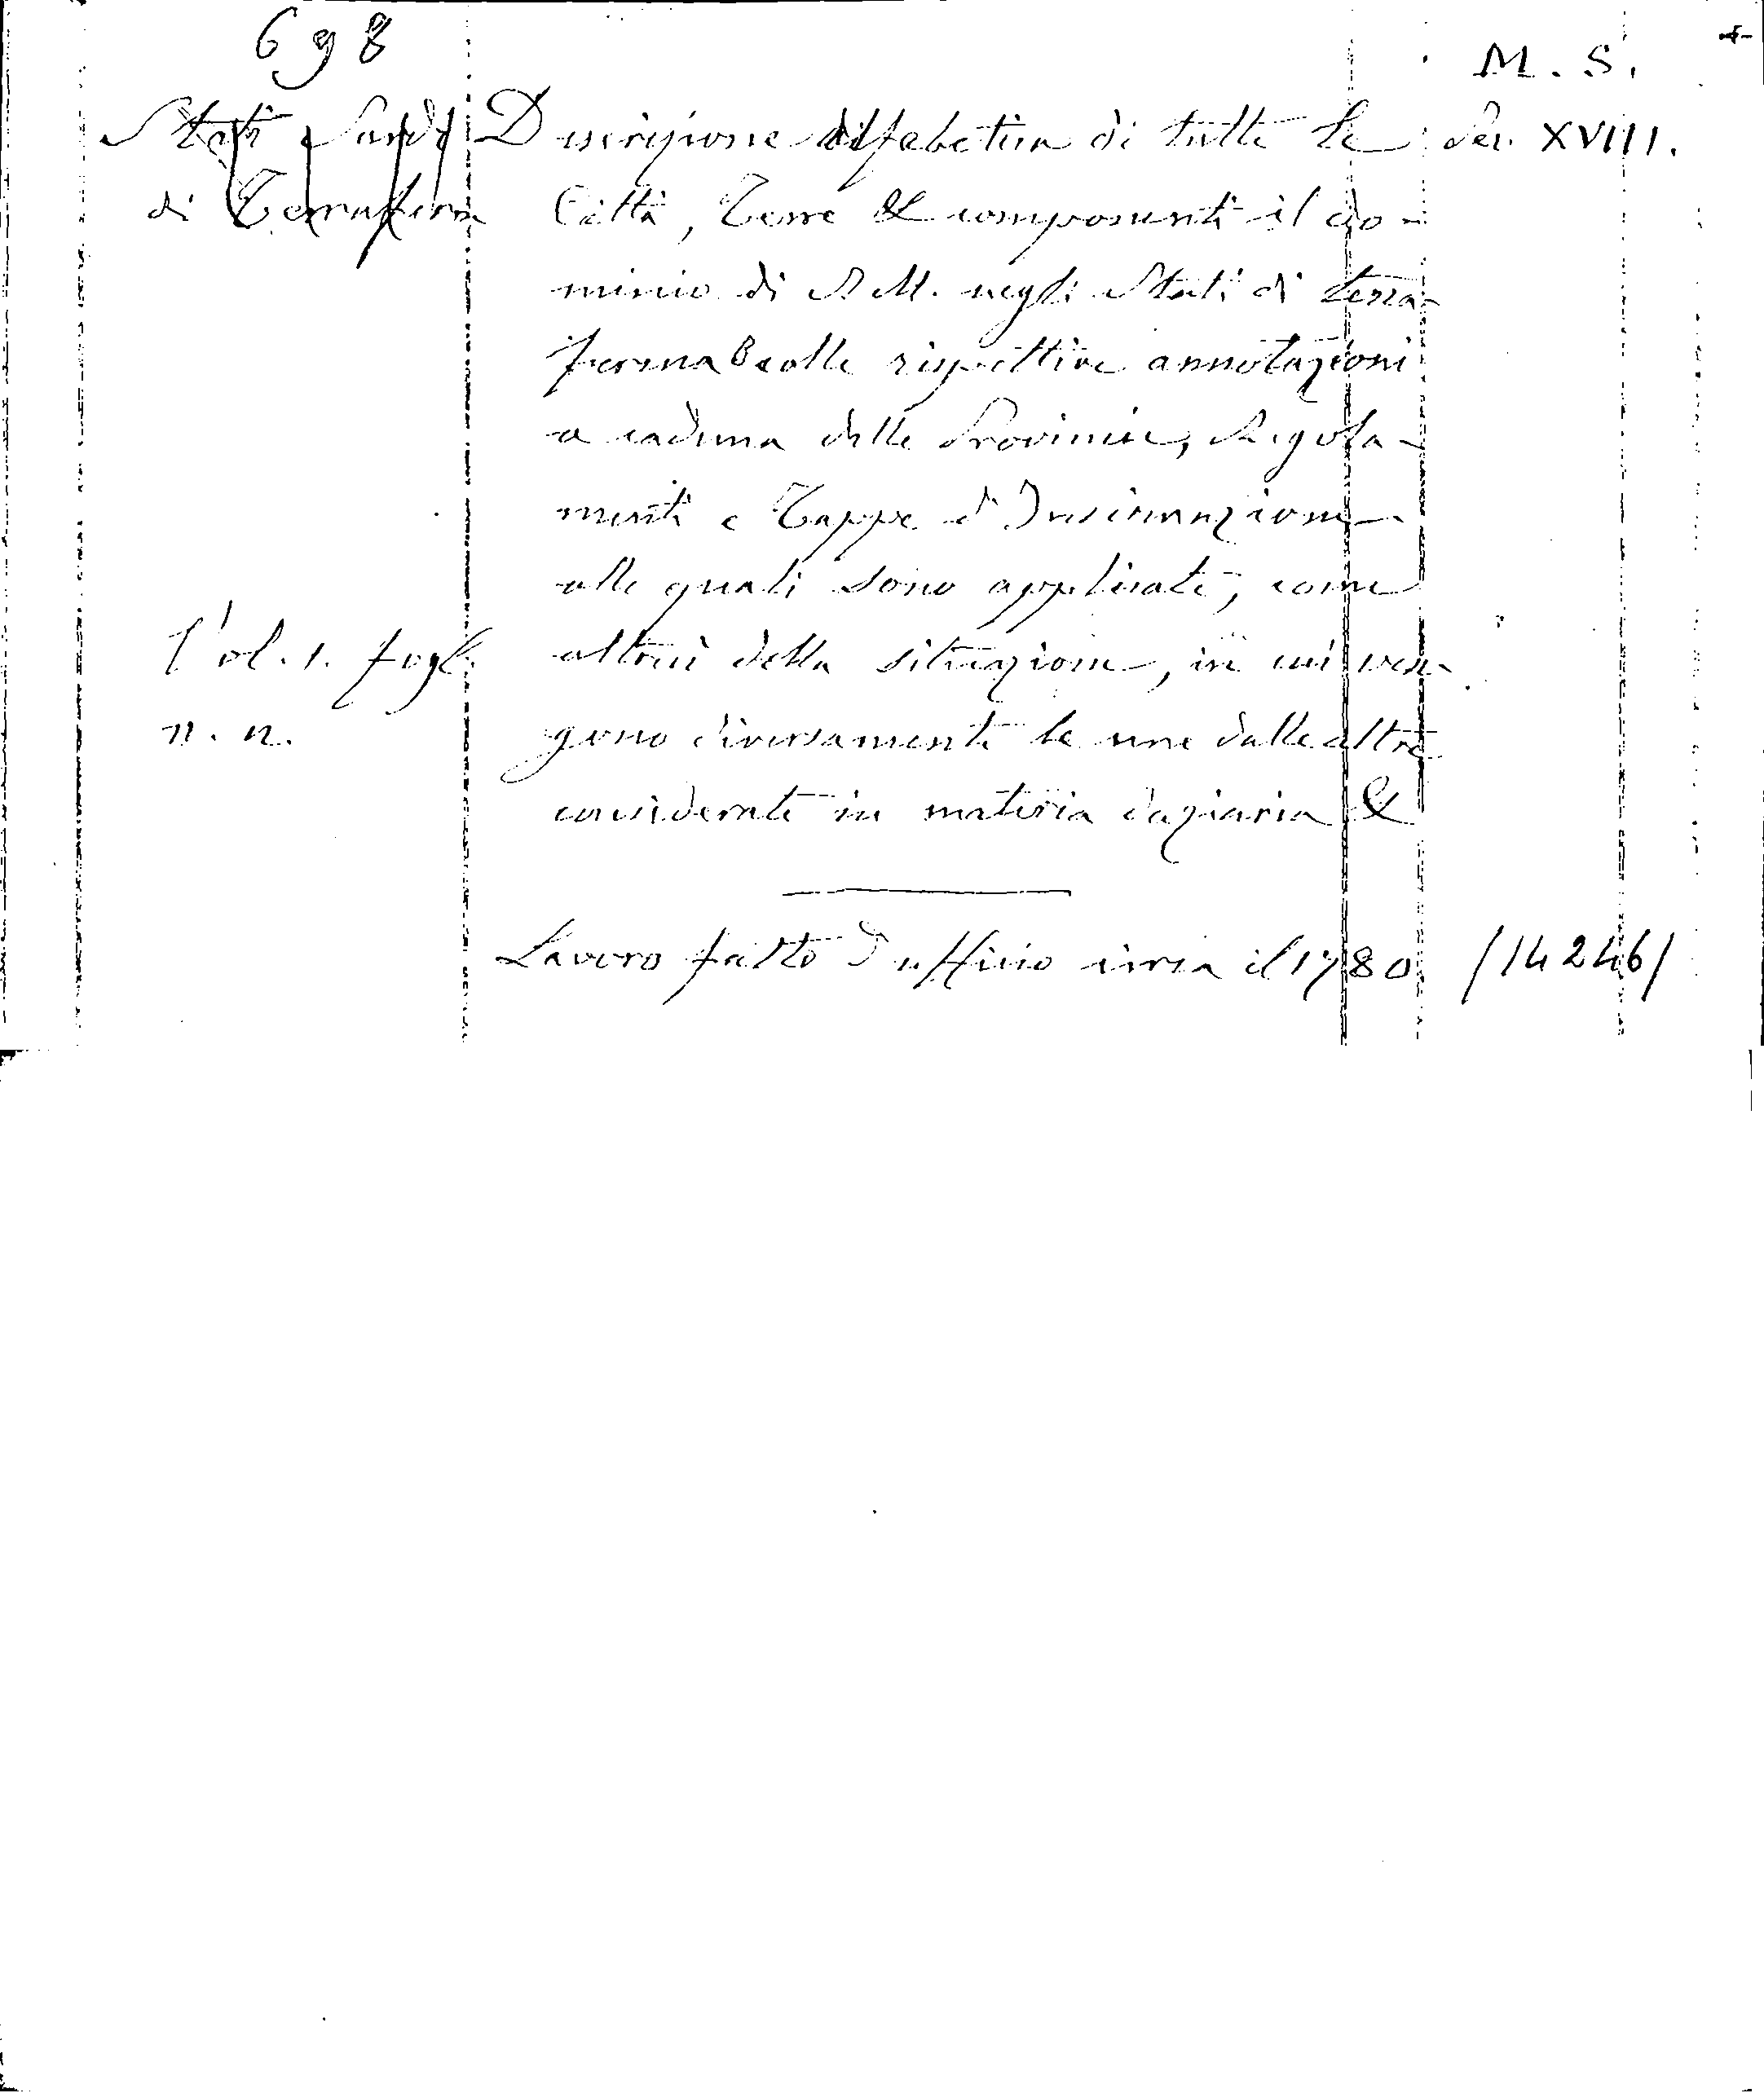 698
M. S.
Stati Sardi
di Terraferma
Descrizione alfabetica di tutte le
Sec. XVIII.
Città, Terre & componenti il do-
minio di S. M. negli Stati di terra-
ferma colle rispettive annotazioni
a caduna delle Provincie, Regola-
menti e Tappe d'Insinuazione
alle quali sono applicate, come
altresì della situazione, in cui ven-
gono diversamente le une dalle altre
considerate in materia daziaria &
Vol. 1. fogl.
n. n.
Lavoro fatto d'ufficio circa il 1780
/14246/